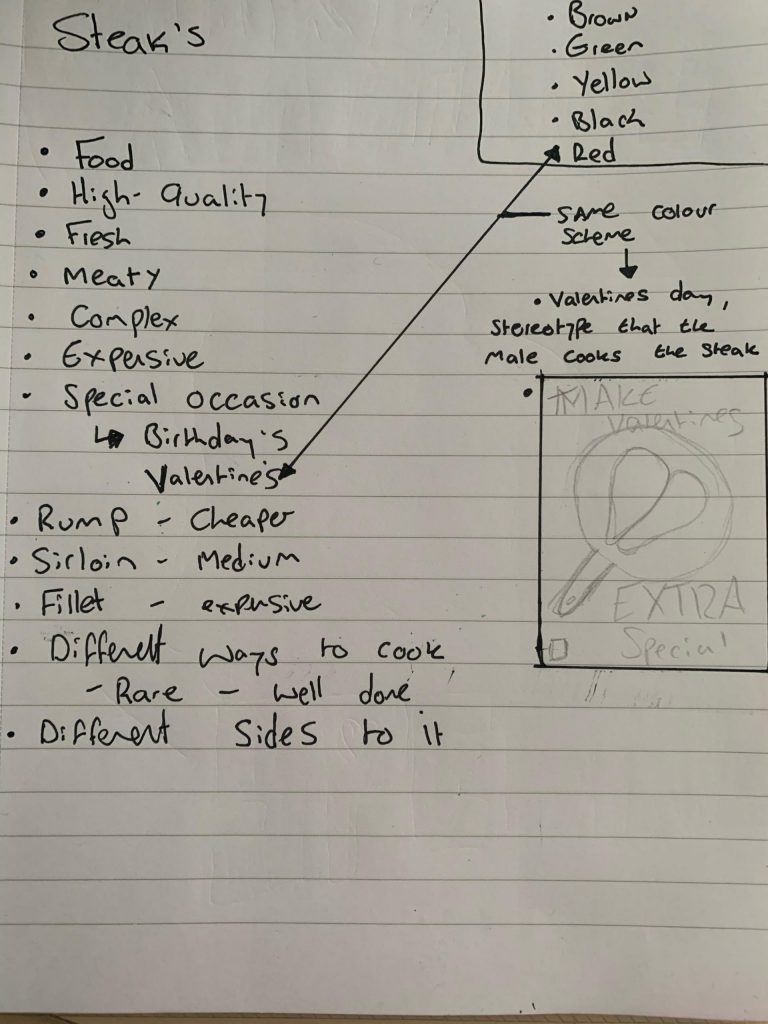 Steak's
• Food
• High-Quality
• Fresh
• Meaty
• Complex
• Expensive
• Special occasion
↳ Birthday's
Valentine's
• Rump - Cheaper
• Sirloin - Medium
• Fillet - expensive
• Different ways to cook
- Rare - well done
• Different sides to it
• Brown
• Green
• Yellow
• Black
• Red
SAME colour
scheme
• Valentines day,
Stereotype that the
Male cooks the steak
MAKE
Valentines
EXTRA
Special